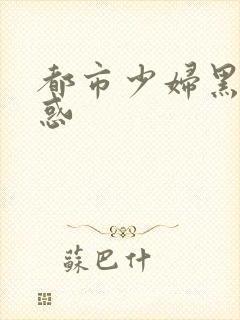 都市少婦黑
惑
蘇巴什